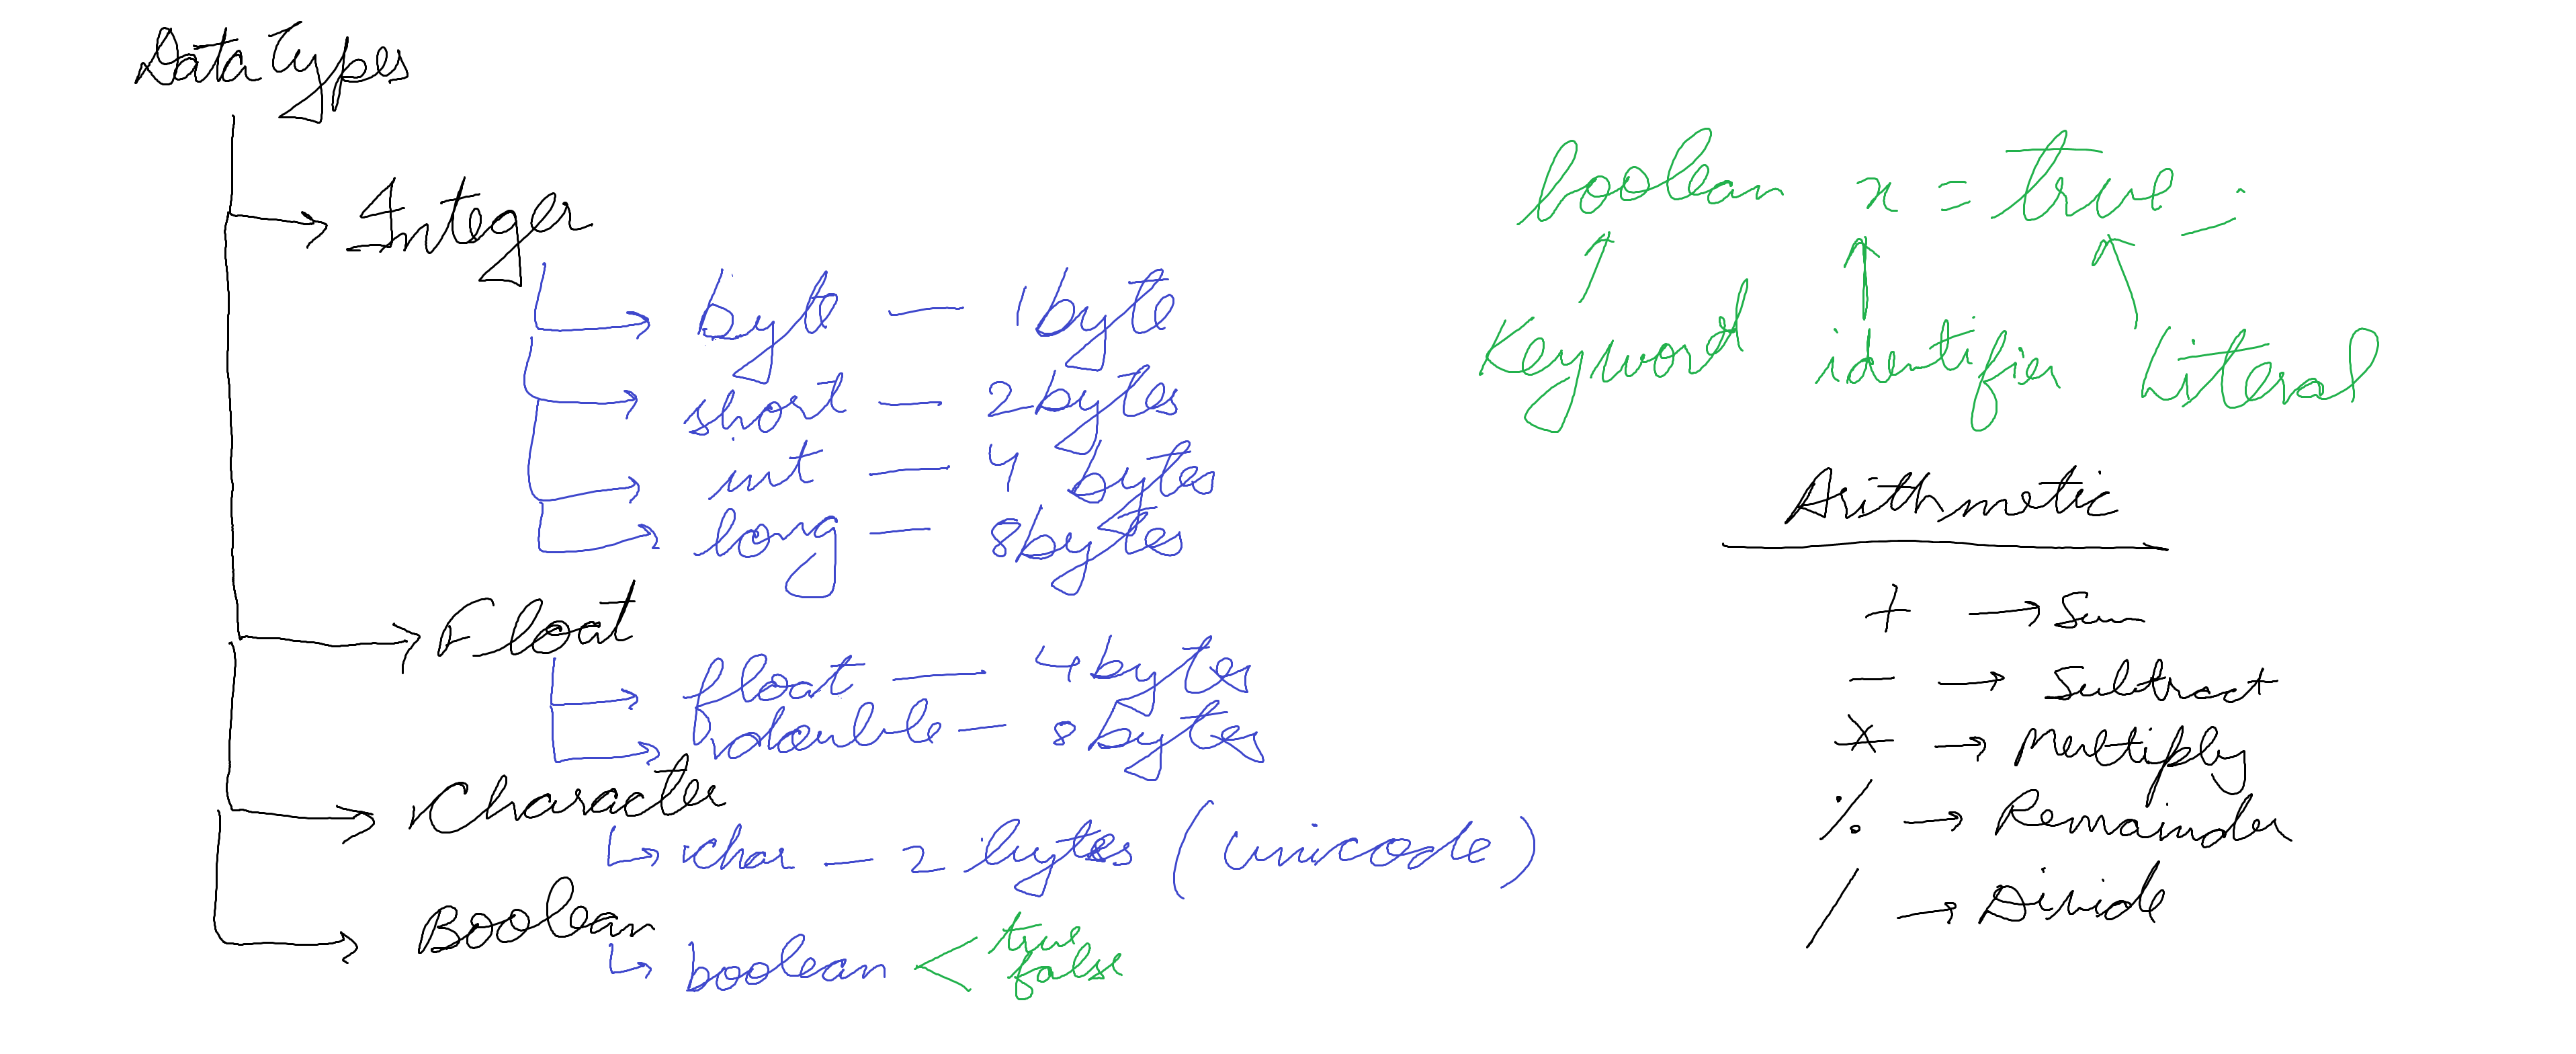 Data Types
→ Integer
→ byte — 1 byte
→ short — 2 bytes
→ int — 4 bytes
→ long — 8 bytes
→ Float
→ float — 4 bytes
→ double — 8 bytes
→ Character
↳ char — 2 bytes (unicode)
→ Boolean
↳ boolean < true
false
boolean x = true ;
Keyword identifier Literal
Arithmetic
+ → Sum
− → Subtract
* → Multiply
% → Remainder
/ → Divide